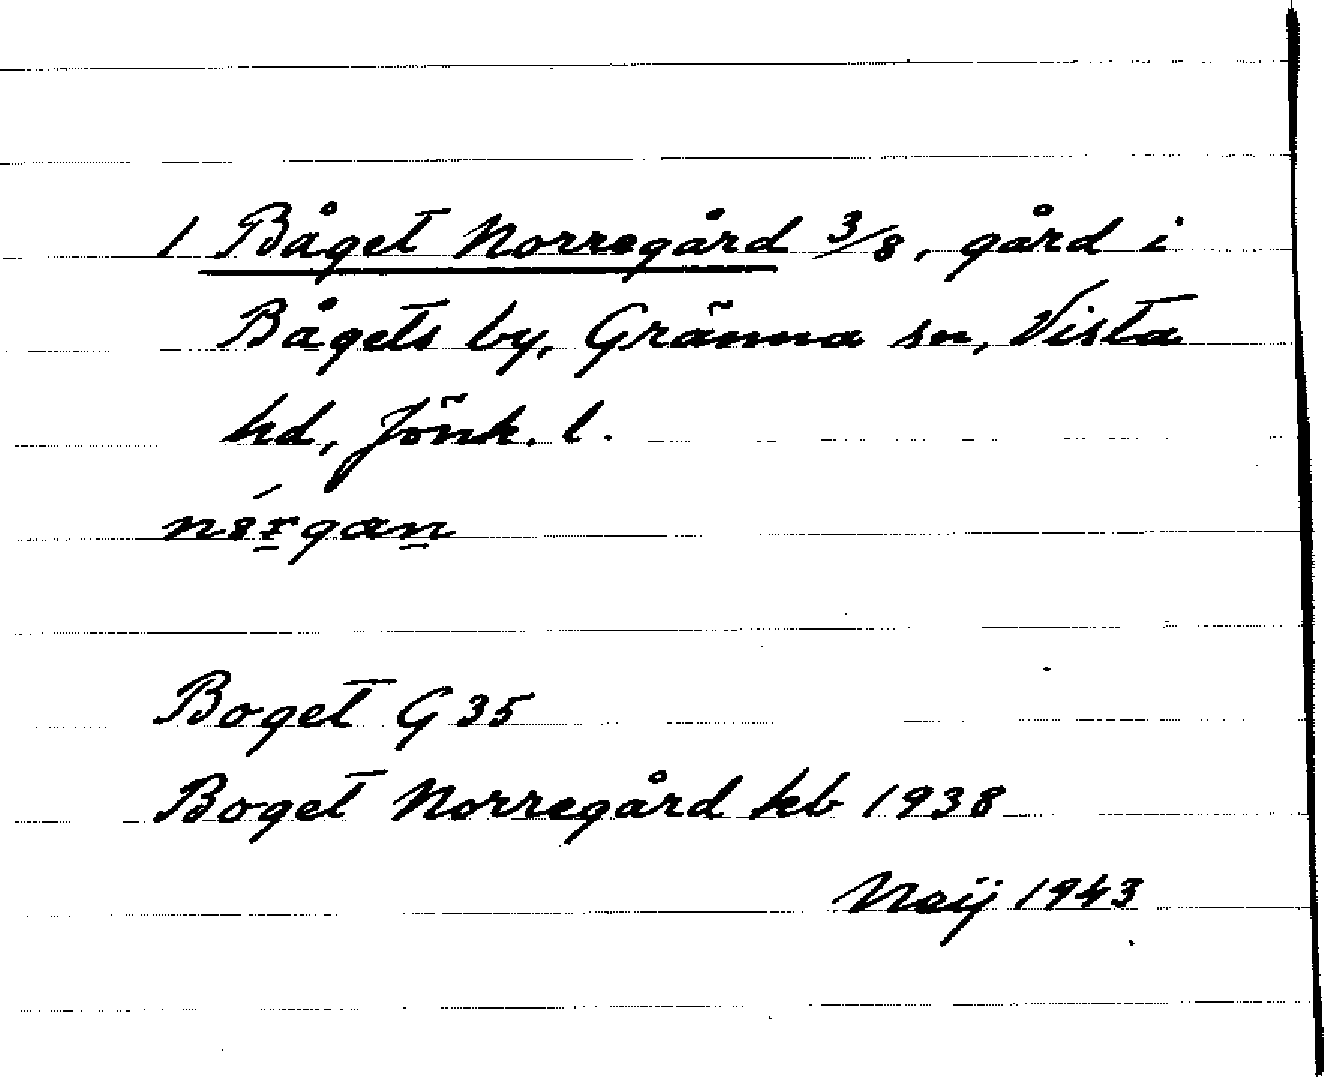 1 Båget Norregård 3/8, gård i
Bågets by, Gränna sn, Vista
hd, Jönk. l.
Boget G 35
Boget Norregård kb 1938
Neij 1943